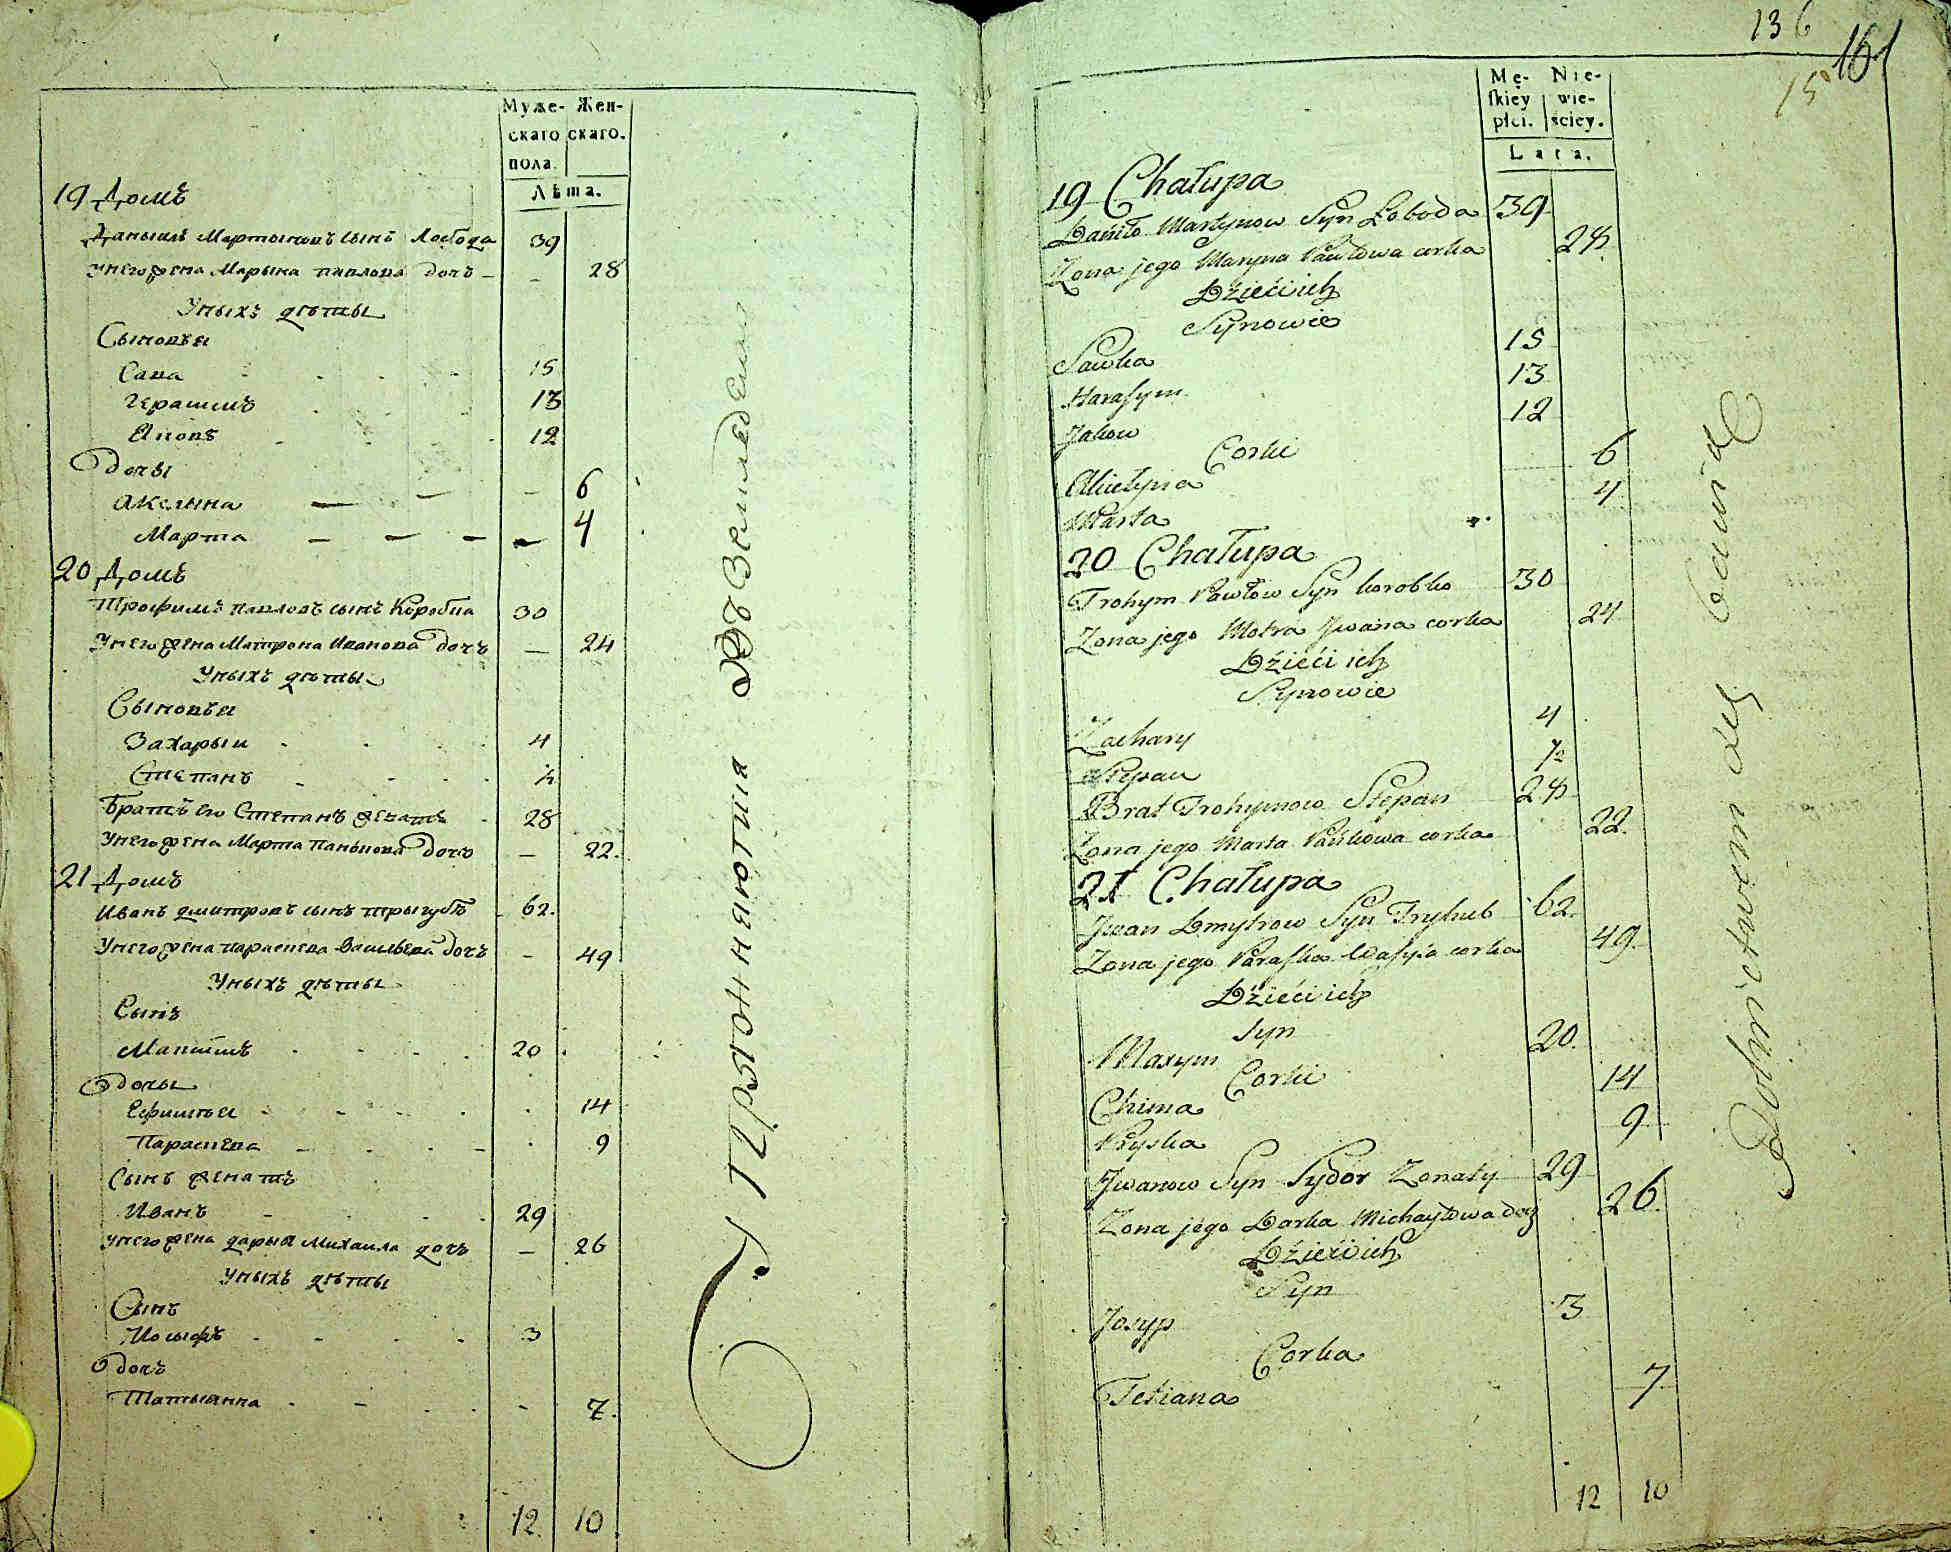 Муже-
скаго
пола.
Жен-
скаго.
Лѣта.
19 Домъ
Даныилъ Мартыновъ сынъ Лобода 39
У него жена Марына павлова дочь - - 28
У ныхъ дѣты
Сыновья
Сава 15
Герасимъ 13
Яковъ 12
дочьи
Акелына — — - 6
Марта — — — — 4
20 Домъ
Трофимъ павловъ сынъ Коробка 30
У него жена Матрона Иванова дочь — 24
У ныхъ дѣты
Сыновья
Захарыи 4
Степанъ ½
Братъ его Степанъ женатъ 28
У него жена Марта панькова дочь — 22.
21 Домъ
Иванъ дмитровъ сынъ трыгубъ 62.
У него жена параскева Васильева дочь - 49
У ныхъ дѣты
Сынъ
Максимъ 20
дочьи
Ефимья 14
Параскева 9
Сынъ женатъ
Иванъ 29
У него жена дарья Михаила дочь — 26
У ныхъ дѣты
Сынъ
Иосыфъ 3
дочь
Татыанна - 7.
12 10
Упражняются въ Земледелии
136
161
15
Mę-
skiey
płci.
Nie-
wie-
ściey.
Lata.
19 Chałupa
Daniło Martynow Syn Łoboda 39
Zona jego Maryna Pawłowa corka 28.
Dzieci ich
Synowie
Sawka 15
Harasym 13
Jakow 12
Corki
Akielyna 6
Marta 4
20 Chałupa
Trohym Pawłow Syn korobko 30
Zona jego Motra Jwana corka 24
Dzieci ich
Synowie
Zachary 4
Stepan ½
Brat Trohymow Stepan 28
Zona jego Marta Pańkowa corka 22.
21 Chałupa
Jwan Dmytrow Syn Tryhub 62.
Zona jego Paraska Wasyla corka 49.
Dzieci ich
Syn
Maxym 20.
Corki
Chima 14
Pryska 9
Jwanow Syn Sydor Zonaty 29
Zona jego Darka Michayłowa 26.
Dzieci ich
Syn
Josyp 3
Corka
Tetiana 7
12 10
Rolnictwem się bawią